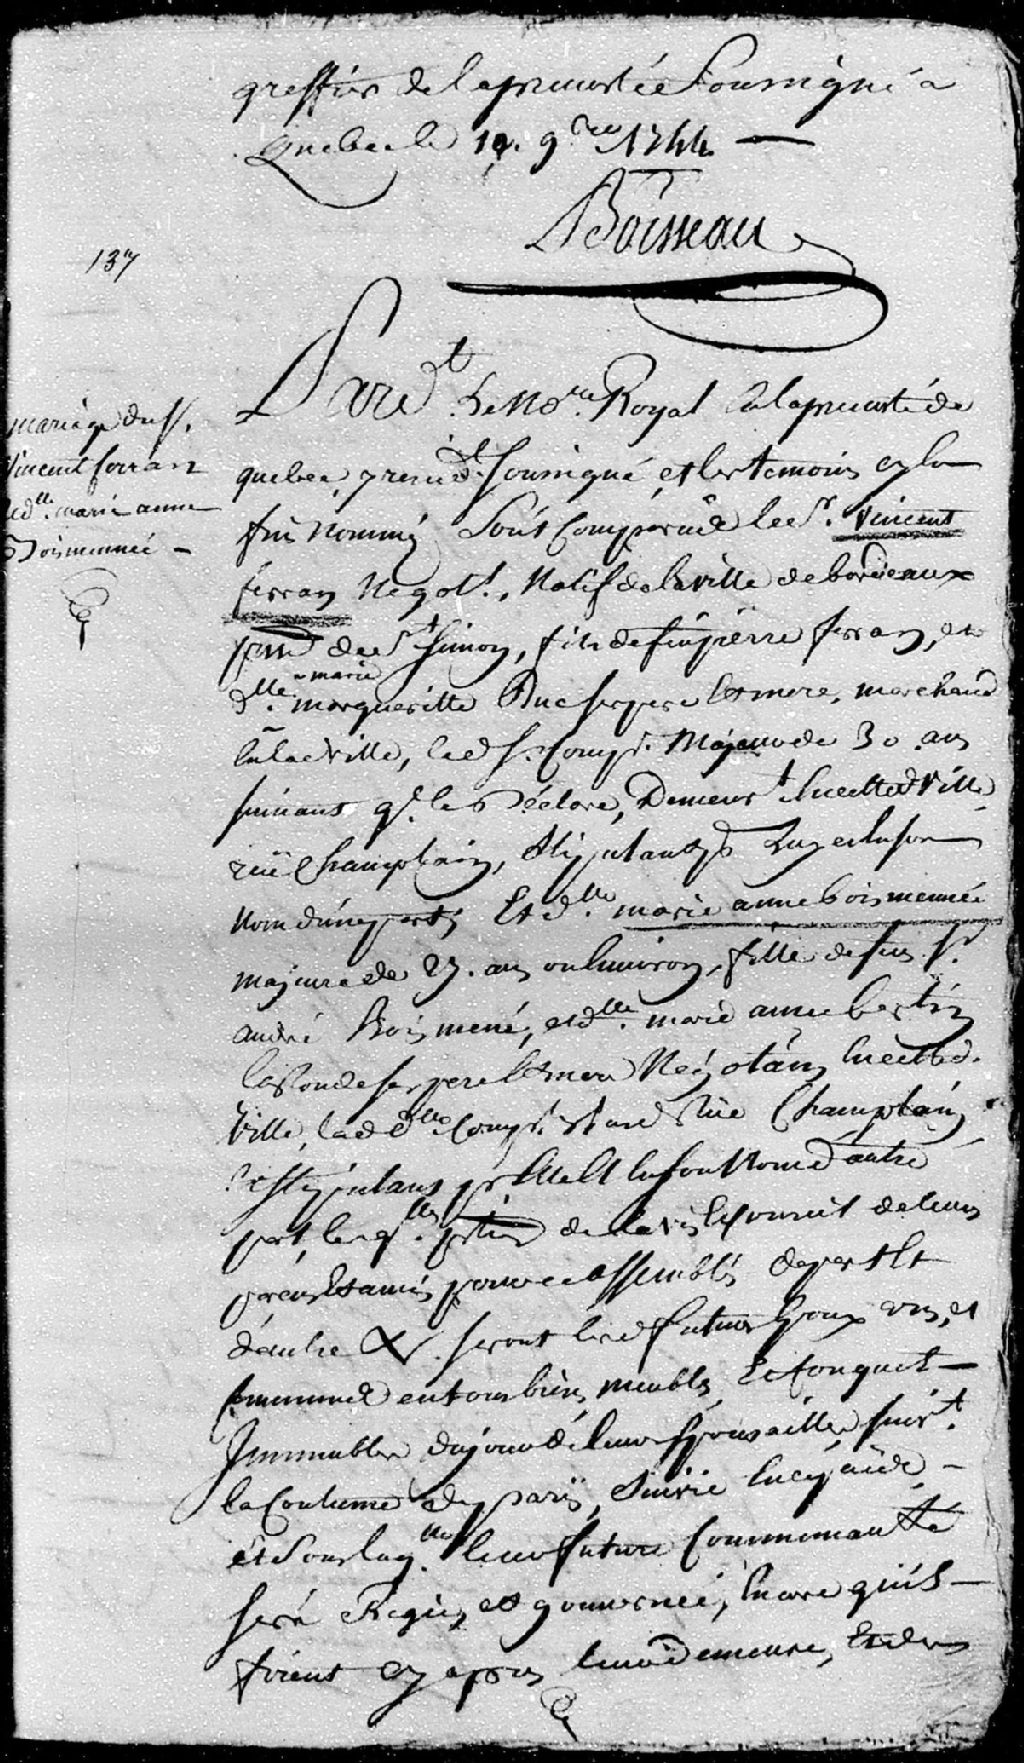 greffier de la prevosté Soussigné a
Quebec le 19. 9bre 1744
NBoisseau
137
mariage du Sr.
Vincent ferran
et dlle. marie anne
Boismenné
Pard.t Le No.re Royal en la prevosté de
quebec, y resid.t soussigné, et les temoins cy la
fin nommés Sont Comparus le Sr. Vincent
ferran Negot.t, Natif de la ville de bordeaux
parr de St Simon, fils de feu pierre ferran, et
dlle. marie margueritte Duc ses pere et mere, marchand
en lad ville, led Sr. Comp.t Majeur de 30 ans
suivant q.l le Declare, Demeur.t en cette ville
rüe Champlain, Stipulant p Luy et en son
Nom d'une part; Et dlle. marie anne boismenné
majeure de 27. ans ou Environ, fille de feu Sr.
andré Boismené, et dlle. marie anne bertin
ses pere et mere Negotians en cette d.
Ville, lad dlle Comp.te rüe Champlain
stipulant pr Elle et en son Nom d'autre
part, lesq.lles parties de l'avis et conseil de leurs
parens et amis pour ce assemblés de part et
d'autre &. seront lesd futurs Epoux uns, et
communs en tous biens meubles et conquest
Immeubles du jour de leurs Epousailles suiv.t
la Coutume de paris, suivie en ce païs
et Sous laq.lle leur future Communauté
sera Regie et gouvernée, encore qu'ils
fissent cy apres leur demeure, et des